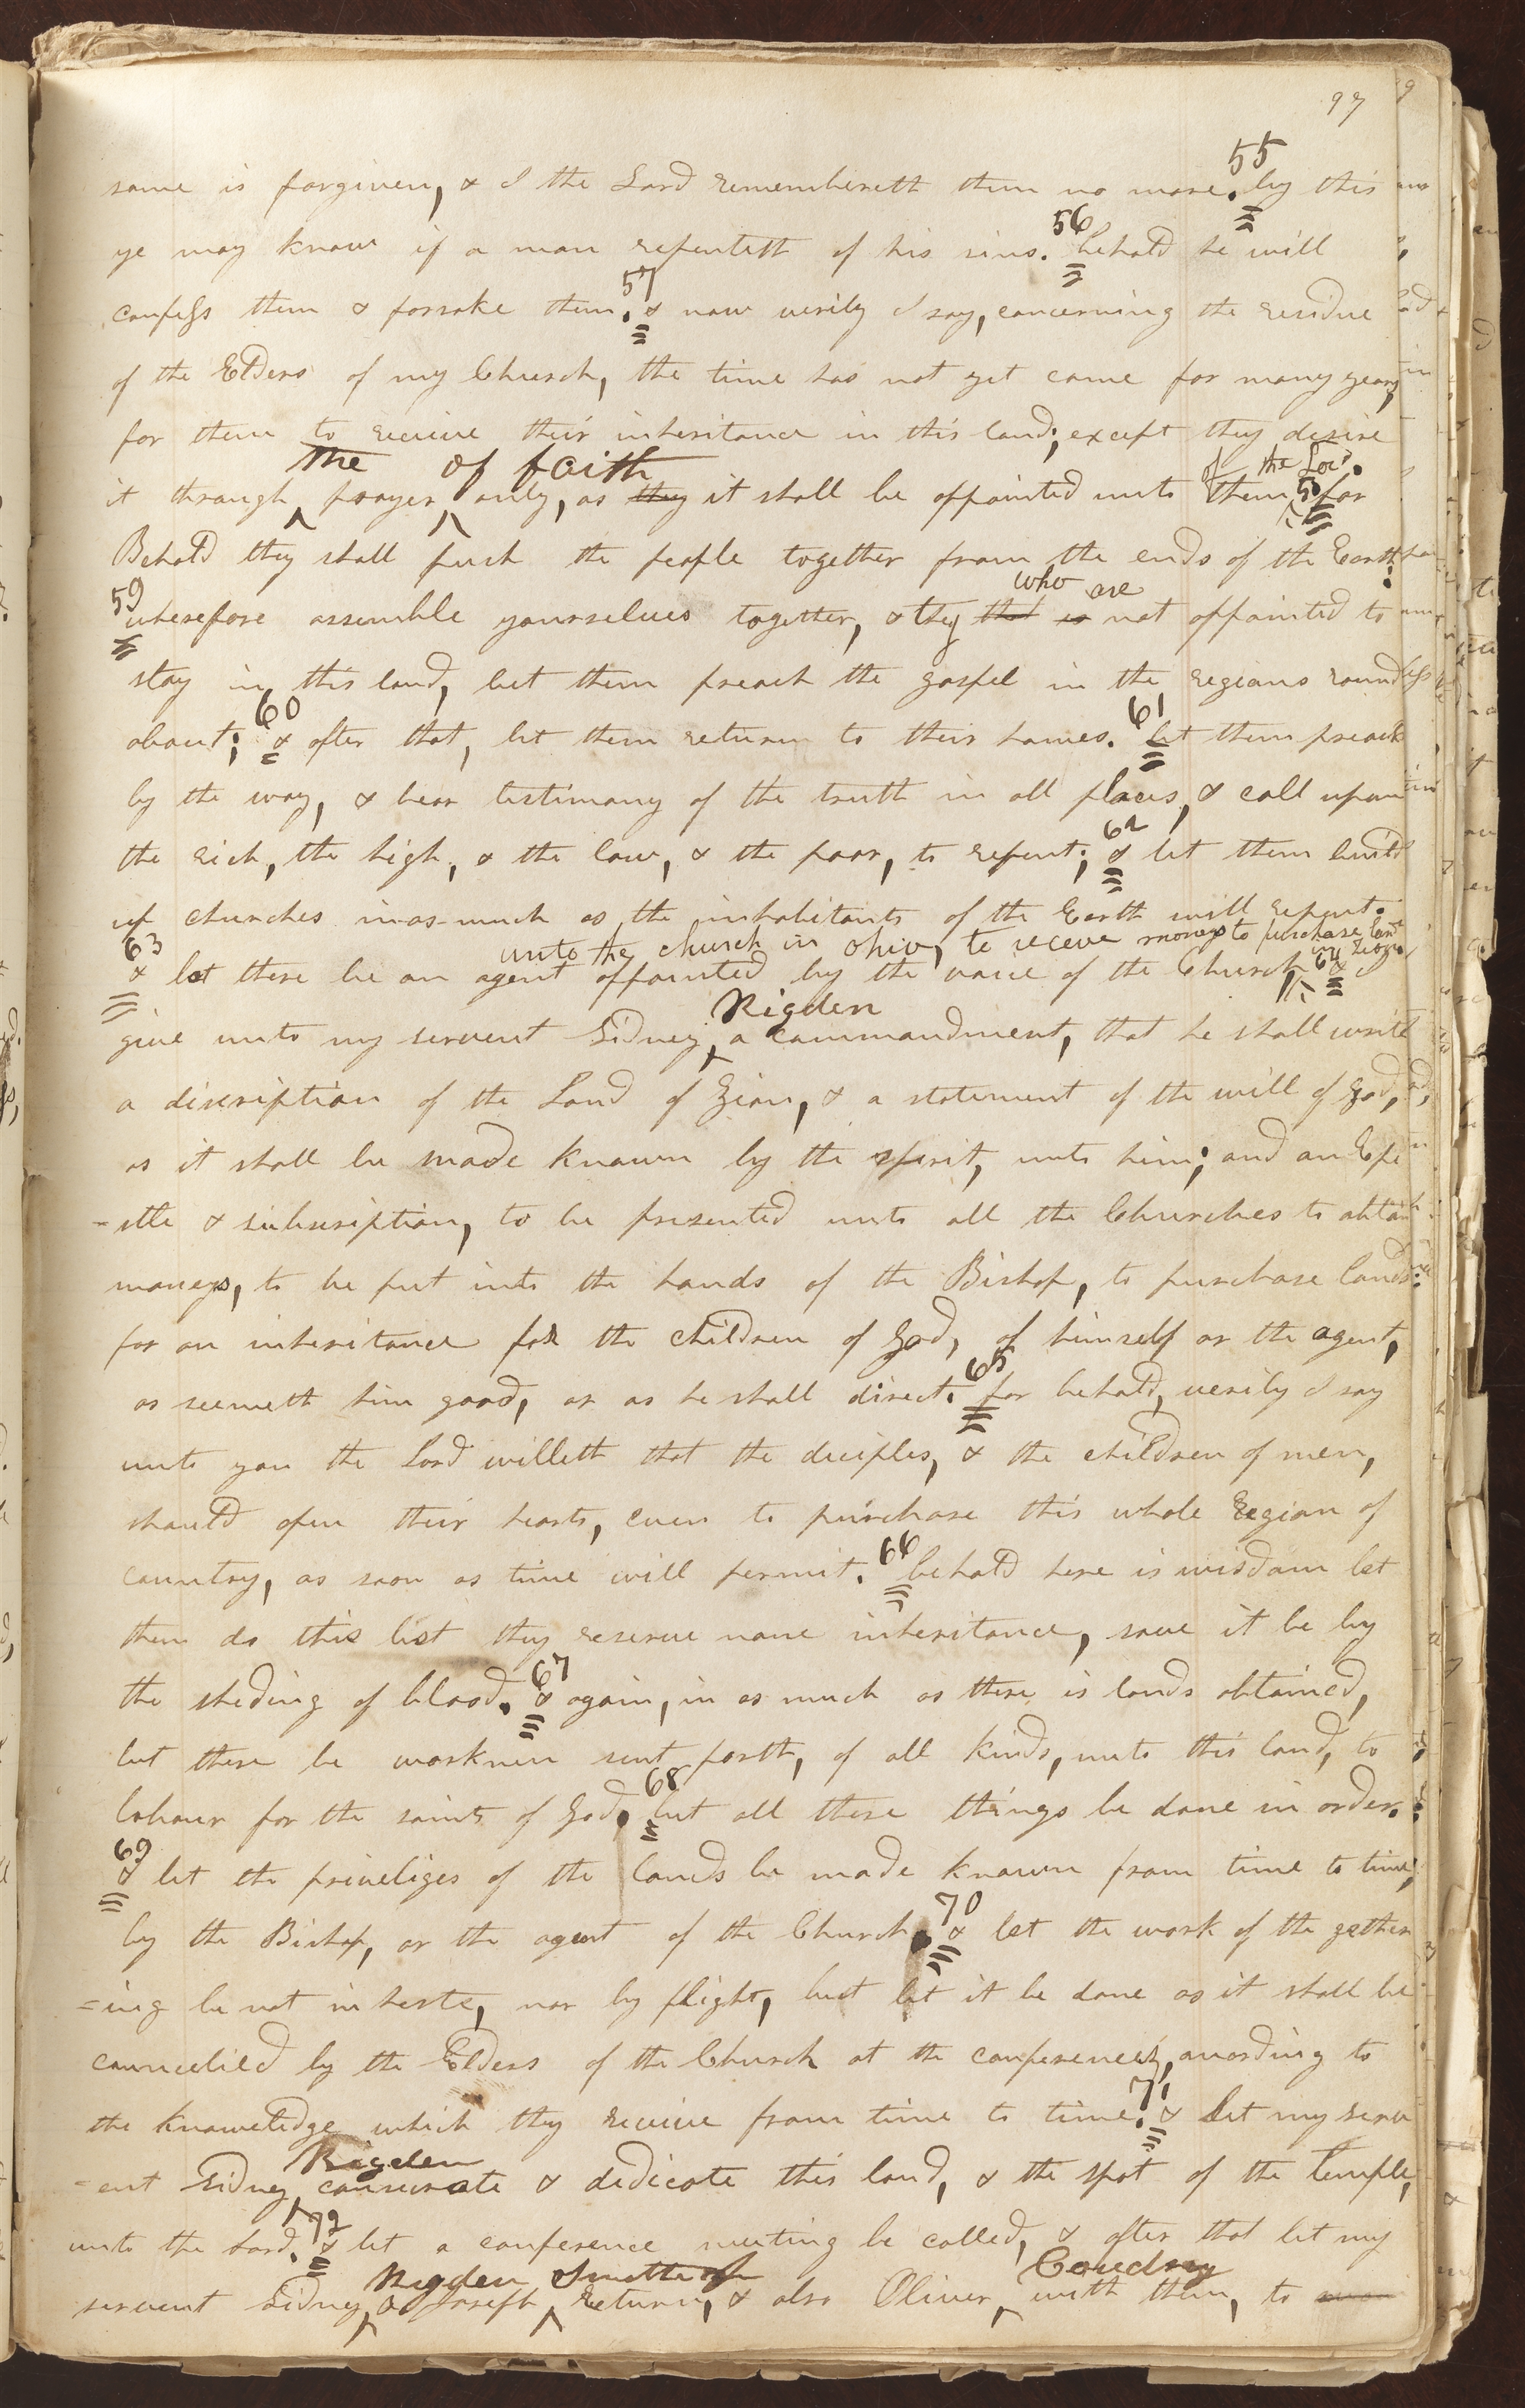 97
55
same is forgiven, & I the Lord remembereth them no more. by this
56
ye may know if a man repenteth of his sins. behold he will
57
confess them & forsake them. & now verily I say, concerning the residue
of the Elders of my Church, the time has not yet come for many years,
for them to receive their inheritance in this land; except they desire
the of faith of the Lord.
it through prayer only, as they it shall be appointed unto them 58 for
Behold they shall push the people together from the ends of the Earth:
59 who are
wherefore assemble yourselves together, & they that is not appointed to
stay in this land, let them preach the gospel in the regions round
60 61
about; & after that, let them return to their homes. let them preach
by the way, & bear testimony of the truth in all places, & call upon
62
the rich, the high, & the low, & the poor, to repent; & let them build
up churches in-as-much as the inhabitants of the Earth will repent.
63 unto the church in Ohio, to receive moneys to purchase lands in Zion.
& let there be an agent appointed by the voice of the Church 64 & I
Rigdon
give unto my servent Sidney a commandment, that he shall write
a discription of the Land of Zion, & a statement of the will of God,
as it shall be made known by the spirit, unto him; and an Epi
-stle & subscription, to be presented unto all the Churches to obtain
moneys, to be put into the hands of the Bishop, to purchase lands
for an inheritance for the children of God, of himself or the agent,
65
as seemeth him good, or as he shall direct. for behold, verily I say
unto you the Lord willeth that the deciples, & the children of men,
should open their hearts, even to purchase this whole Region of
66
country, as soon as time will permit. behold here is wisdom let
them do this lest they receive none inheritance, save it be by
67
the sheding of blood. & again, in as much as there is lands obtained,
let there be workmen sent forth, of all kinds, unto this land, to
68
labour for the saints of God. let all these things be done in order.
69
& let the priveliges of the lands be made known from time to time,
70
by the Bishop, or the agent of the Church. & let the work of the gather
=ing be not in haste, nor by flight, but let it be done as it shall be
councelied by the Elders of the Church at the conferences, according to
71
the knowelidge which they receive from time to time. & let my serv
Rigdon
=ent Sidney consecrate & dedicate this land, & the spot of the Temple,
72
unto the Lord. & let a conference meeting be called, & after that let my
Rigdon Smith jr Cowdrey
servent Sidney & Joseph return, & also Oliver with them, to